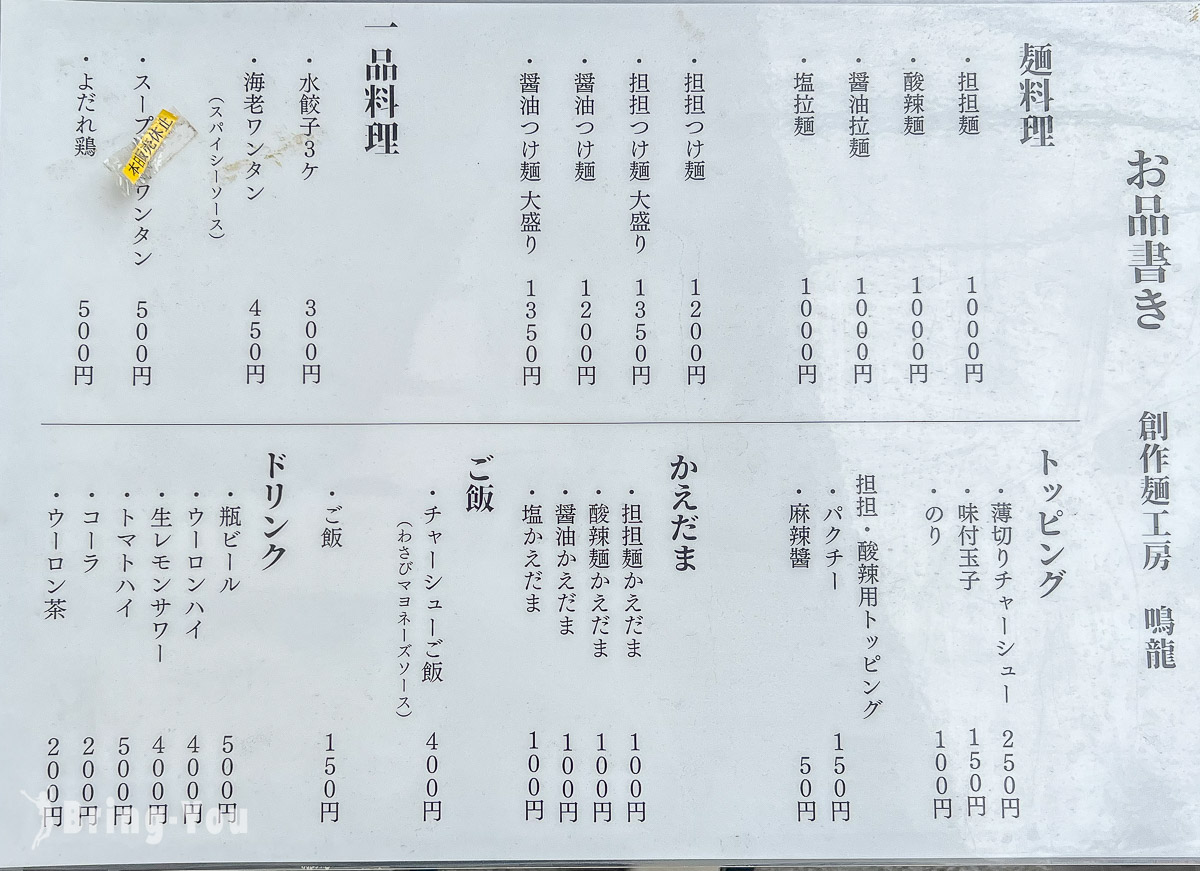 お品書き 創作麺工房 鳴龍
麺料理
・担担麺 1000円
・酸辣麺 1000円
・醤油拉麺 1000円
・塩拉麺 1000円
・担担つけ麺 1200円
・担担つけ麺 大盛り 1350円
・醤油つけ麺 1200円
・醤油つけ麺 大盛り 1350円
一品料理
・水餃子3ケ 300円
・海老ワンタン 450円
（スパイシーソース）
・スープ ワンタン 500円
販売休止
・よだれ鶏 500円
トッピング
・薄切りチャーシュー 250円
・味付玉子 150円
・のり 100円
担担・酸辣用トッピング
・パクチー 150円
・麻辣醤 50円
かえだま
・担担麺かえだま 100円
・酸辣麺かえだま 100円
・醤油かえだま 100円
・塩かえだま 100円
ご飯
・チャーシューご飯 400円
（わさびマヨネーズソース）
・ご飯 150円
ドリンク
・瓶ビール 500円
・ウーロンハイ 400円
・生レモンサワー 400円
・トマトハイ 500円
・コーラ 200円
・ウーロン茶 200円
Bring-You